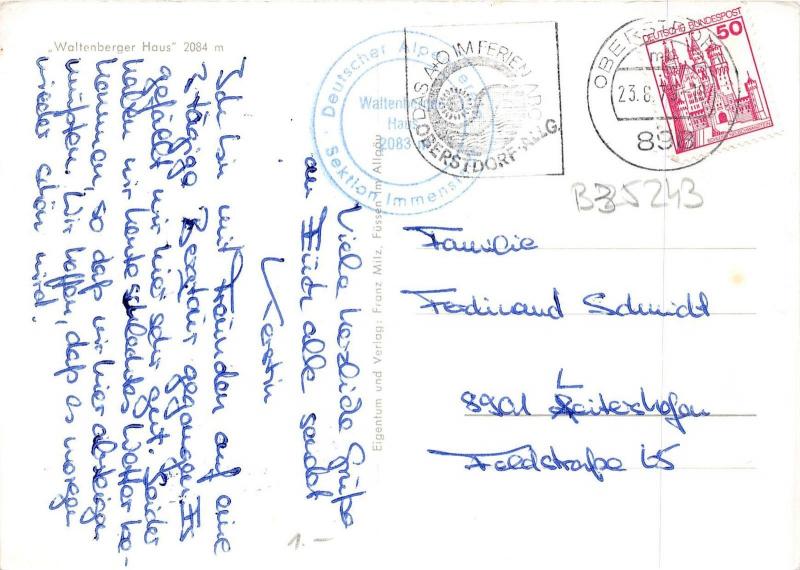 „Waltenberger Haus" 2084 m
Ich bin mit Freunden auf eine
3 tägige Bergtour gegangen. Es
gefällt mir hier sehr gut. Leider
haben wir heute schlechtes Wetter be-
kommen, so daß wir hier absteigen
mußten. Wir hoffen, daß es morgen
wieder schön wird.
Viele herzliche Grüße
an Euch alle sendet
Kerstin
Eigentum und Verlag: Franz Milz, Füssen im Allgäu
Deutscher Alpenverein
Waltenberger
Haus
2083 m
Sektion Immenstadt
DAS A-O IM FERIEN ABC
OBERSTDORF-ALLG.
OBERSTDORF
23.8.
898
DEUTSCHE BUNDESPOST
50
B35243
Familie
Ferdinand Schmidt
8901 Leitershofen
Feldstraße 65
1.-